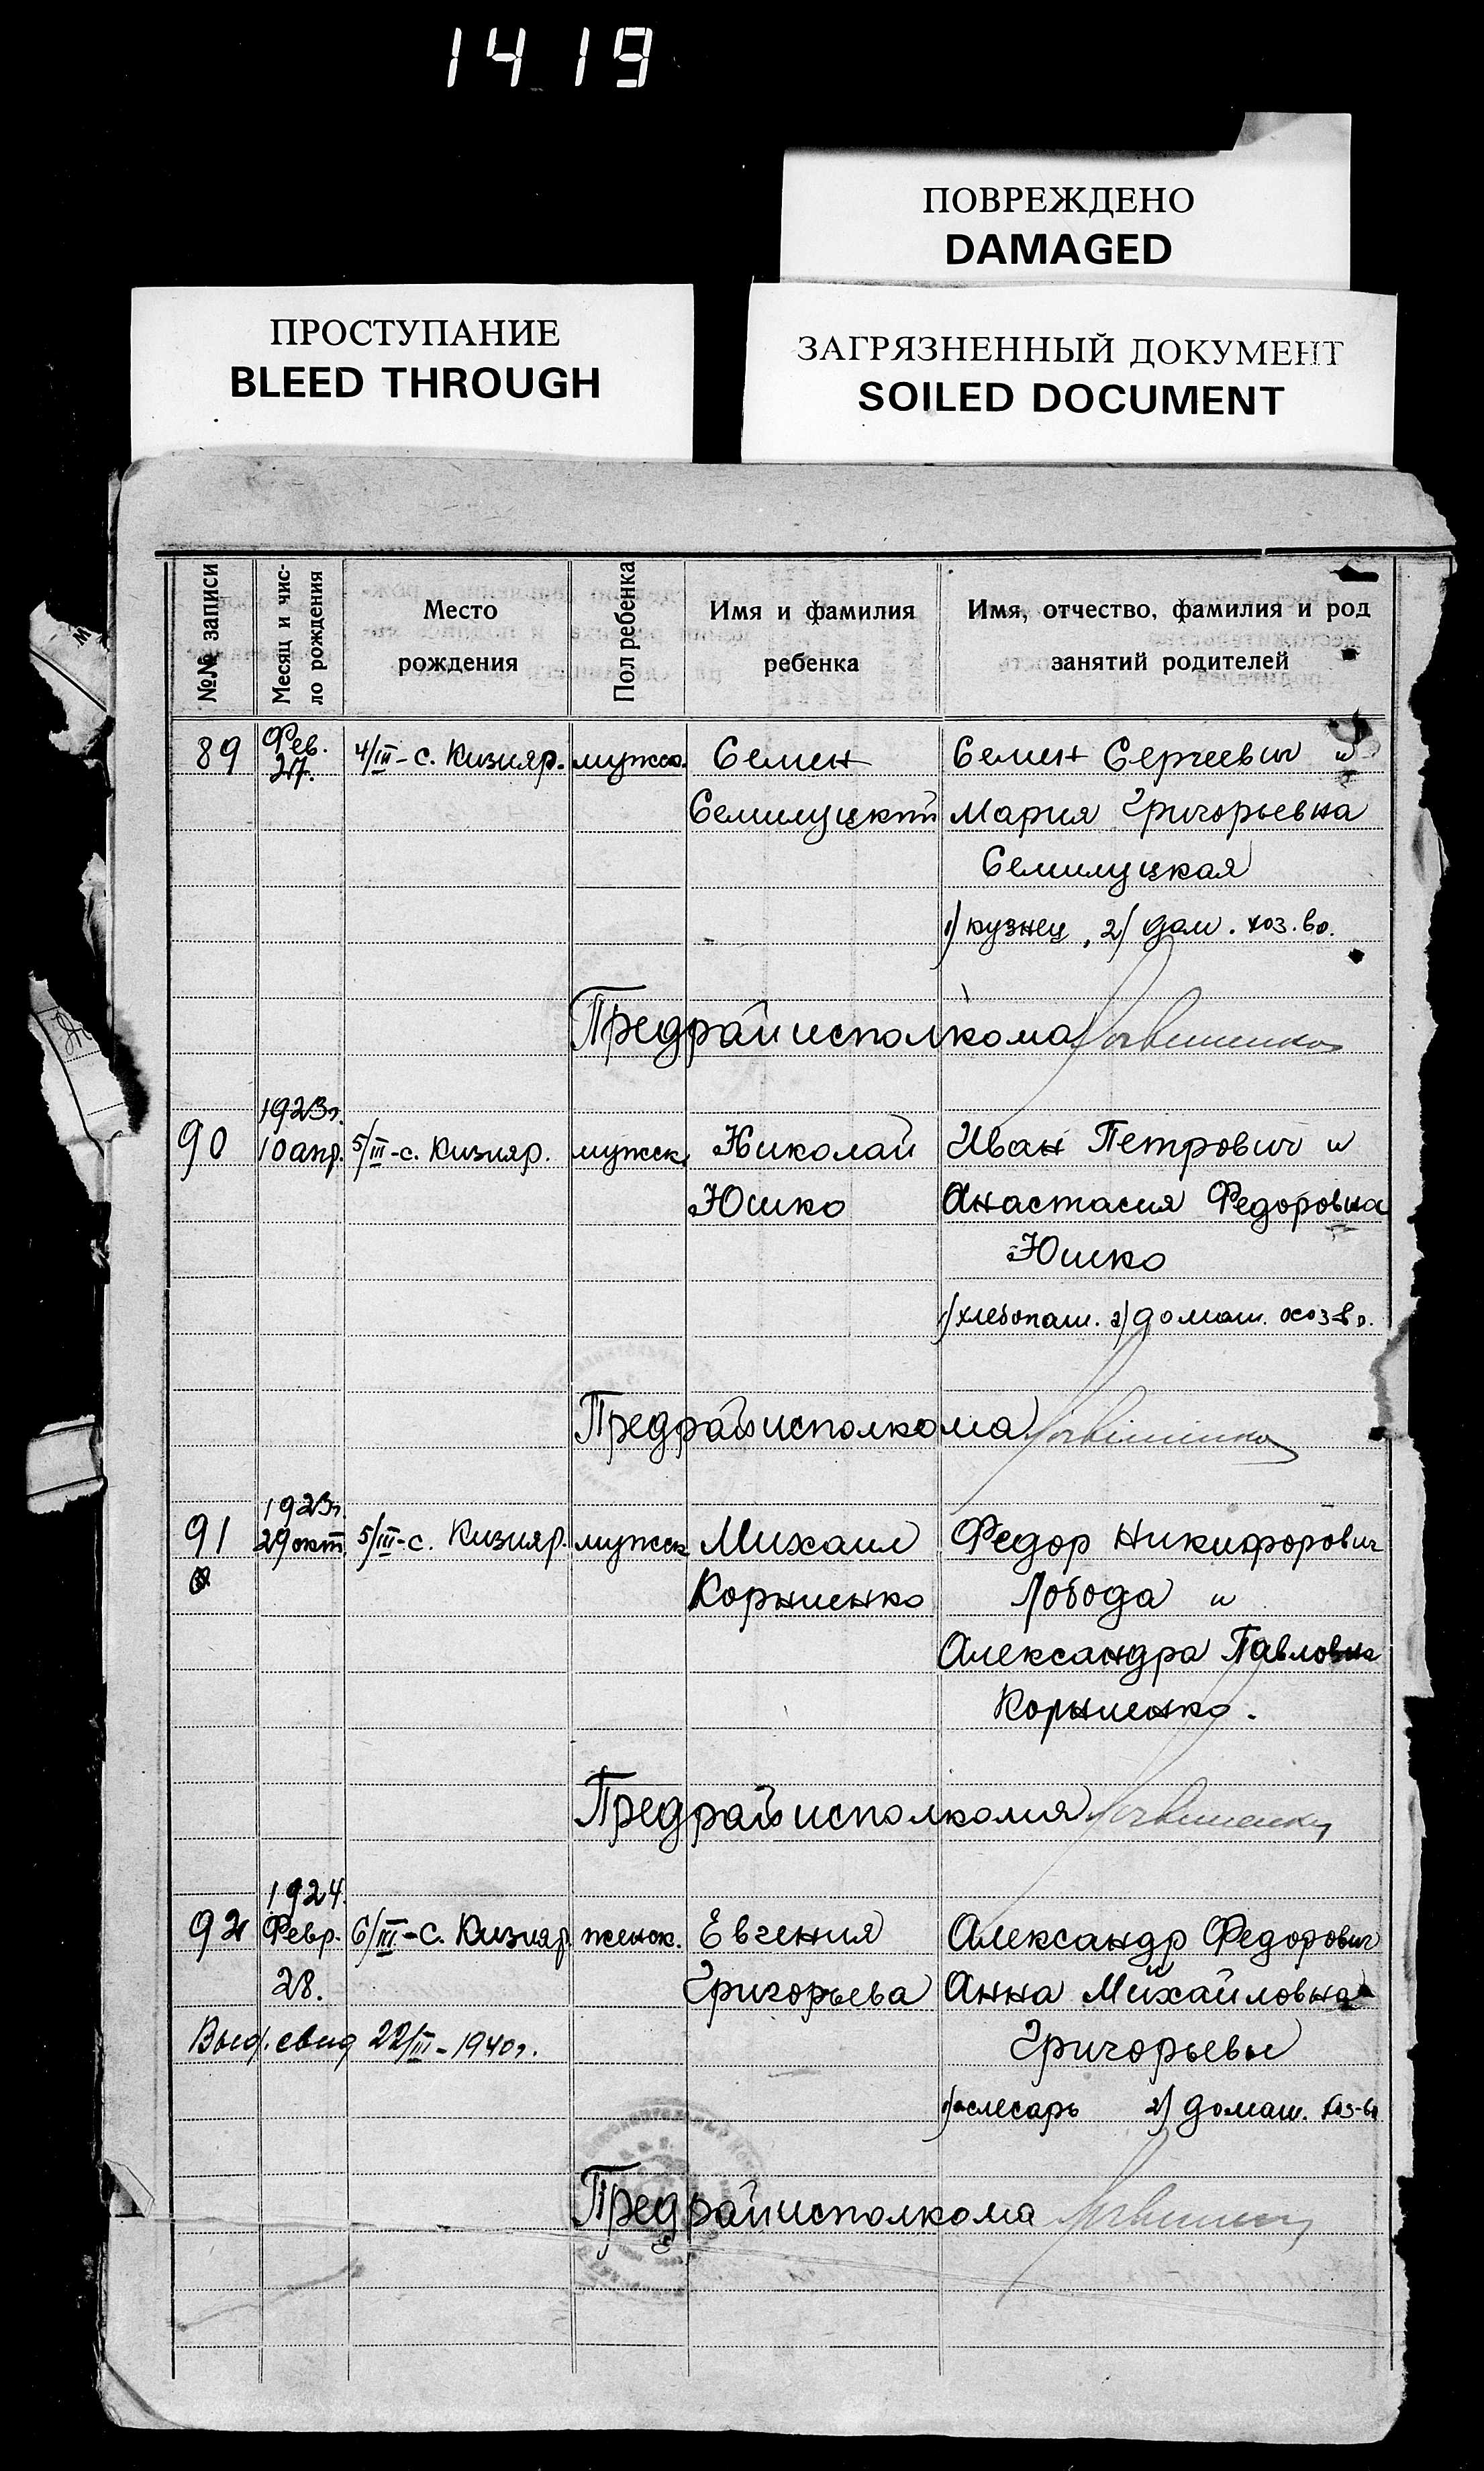 1419
ПОВРЕЖДЕНО
DAMAGED
ПРОСТУПАНИЕ
BLEED THROUGH
ЗАГРЯЗНЕННЫЙ ДОКУМЕНТ
SOILED DOCUMENT
№№ записи
Месяц и чис-
ло рождения
Место
рождения
Пол ребенка
Имя и фамилия
ребенка
Имя, отчество, фамилия и род
занятий родителей
89 Фев. 27. 4/III-с. Кизияр. мужск. Семен Семен Сергеевич и
Семилуцкий Мария Григорьевна
Семилуцкая
1) кузнец, 2) дом. хоз. во.
Предрайисполкома
1923г.
90 10 апр. 5/III-с. Кизияр. мужск. Николай Иван Петрович и
Юшко Анастасия Федоровна
Юшко
1) хлебопаш. 2) домаш. хоз-во.
Предрайисполкома
1923г.
91 29 окт. 5/III-с. Кизияр. мужск Михаил Федор Никифорович
Корниенко Лобода и
Александра Павловна
Корниенко.
Предрайисполкома
1924.
92 Февр. 6/III-с. Кизияр женск. Евгения Александр Федорович
и
28. Григорьева Анна Михайловна
Выд. свид 22/III-1940г. Григорьевы
1) слесарь 2) домаш. хоз-во
Предрайисполкома